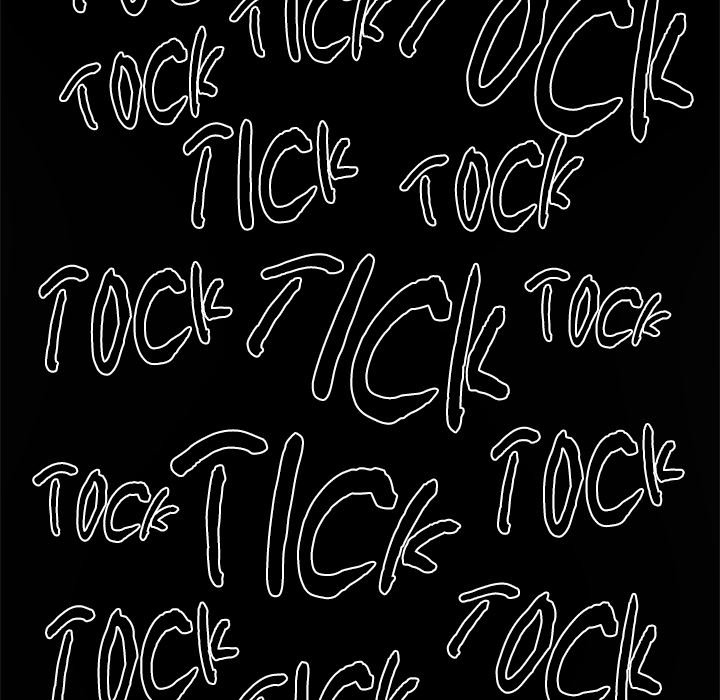 TOCK
TICK
TOCK
TOCK
TICK
TOCK
TOCK
TICK
TOCK
TOCK
TICK
TOCK
TOCK
TICK
TOCK